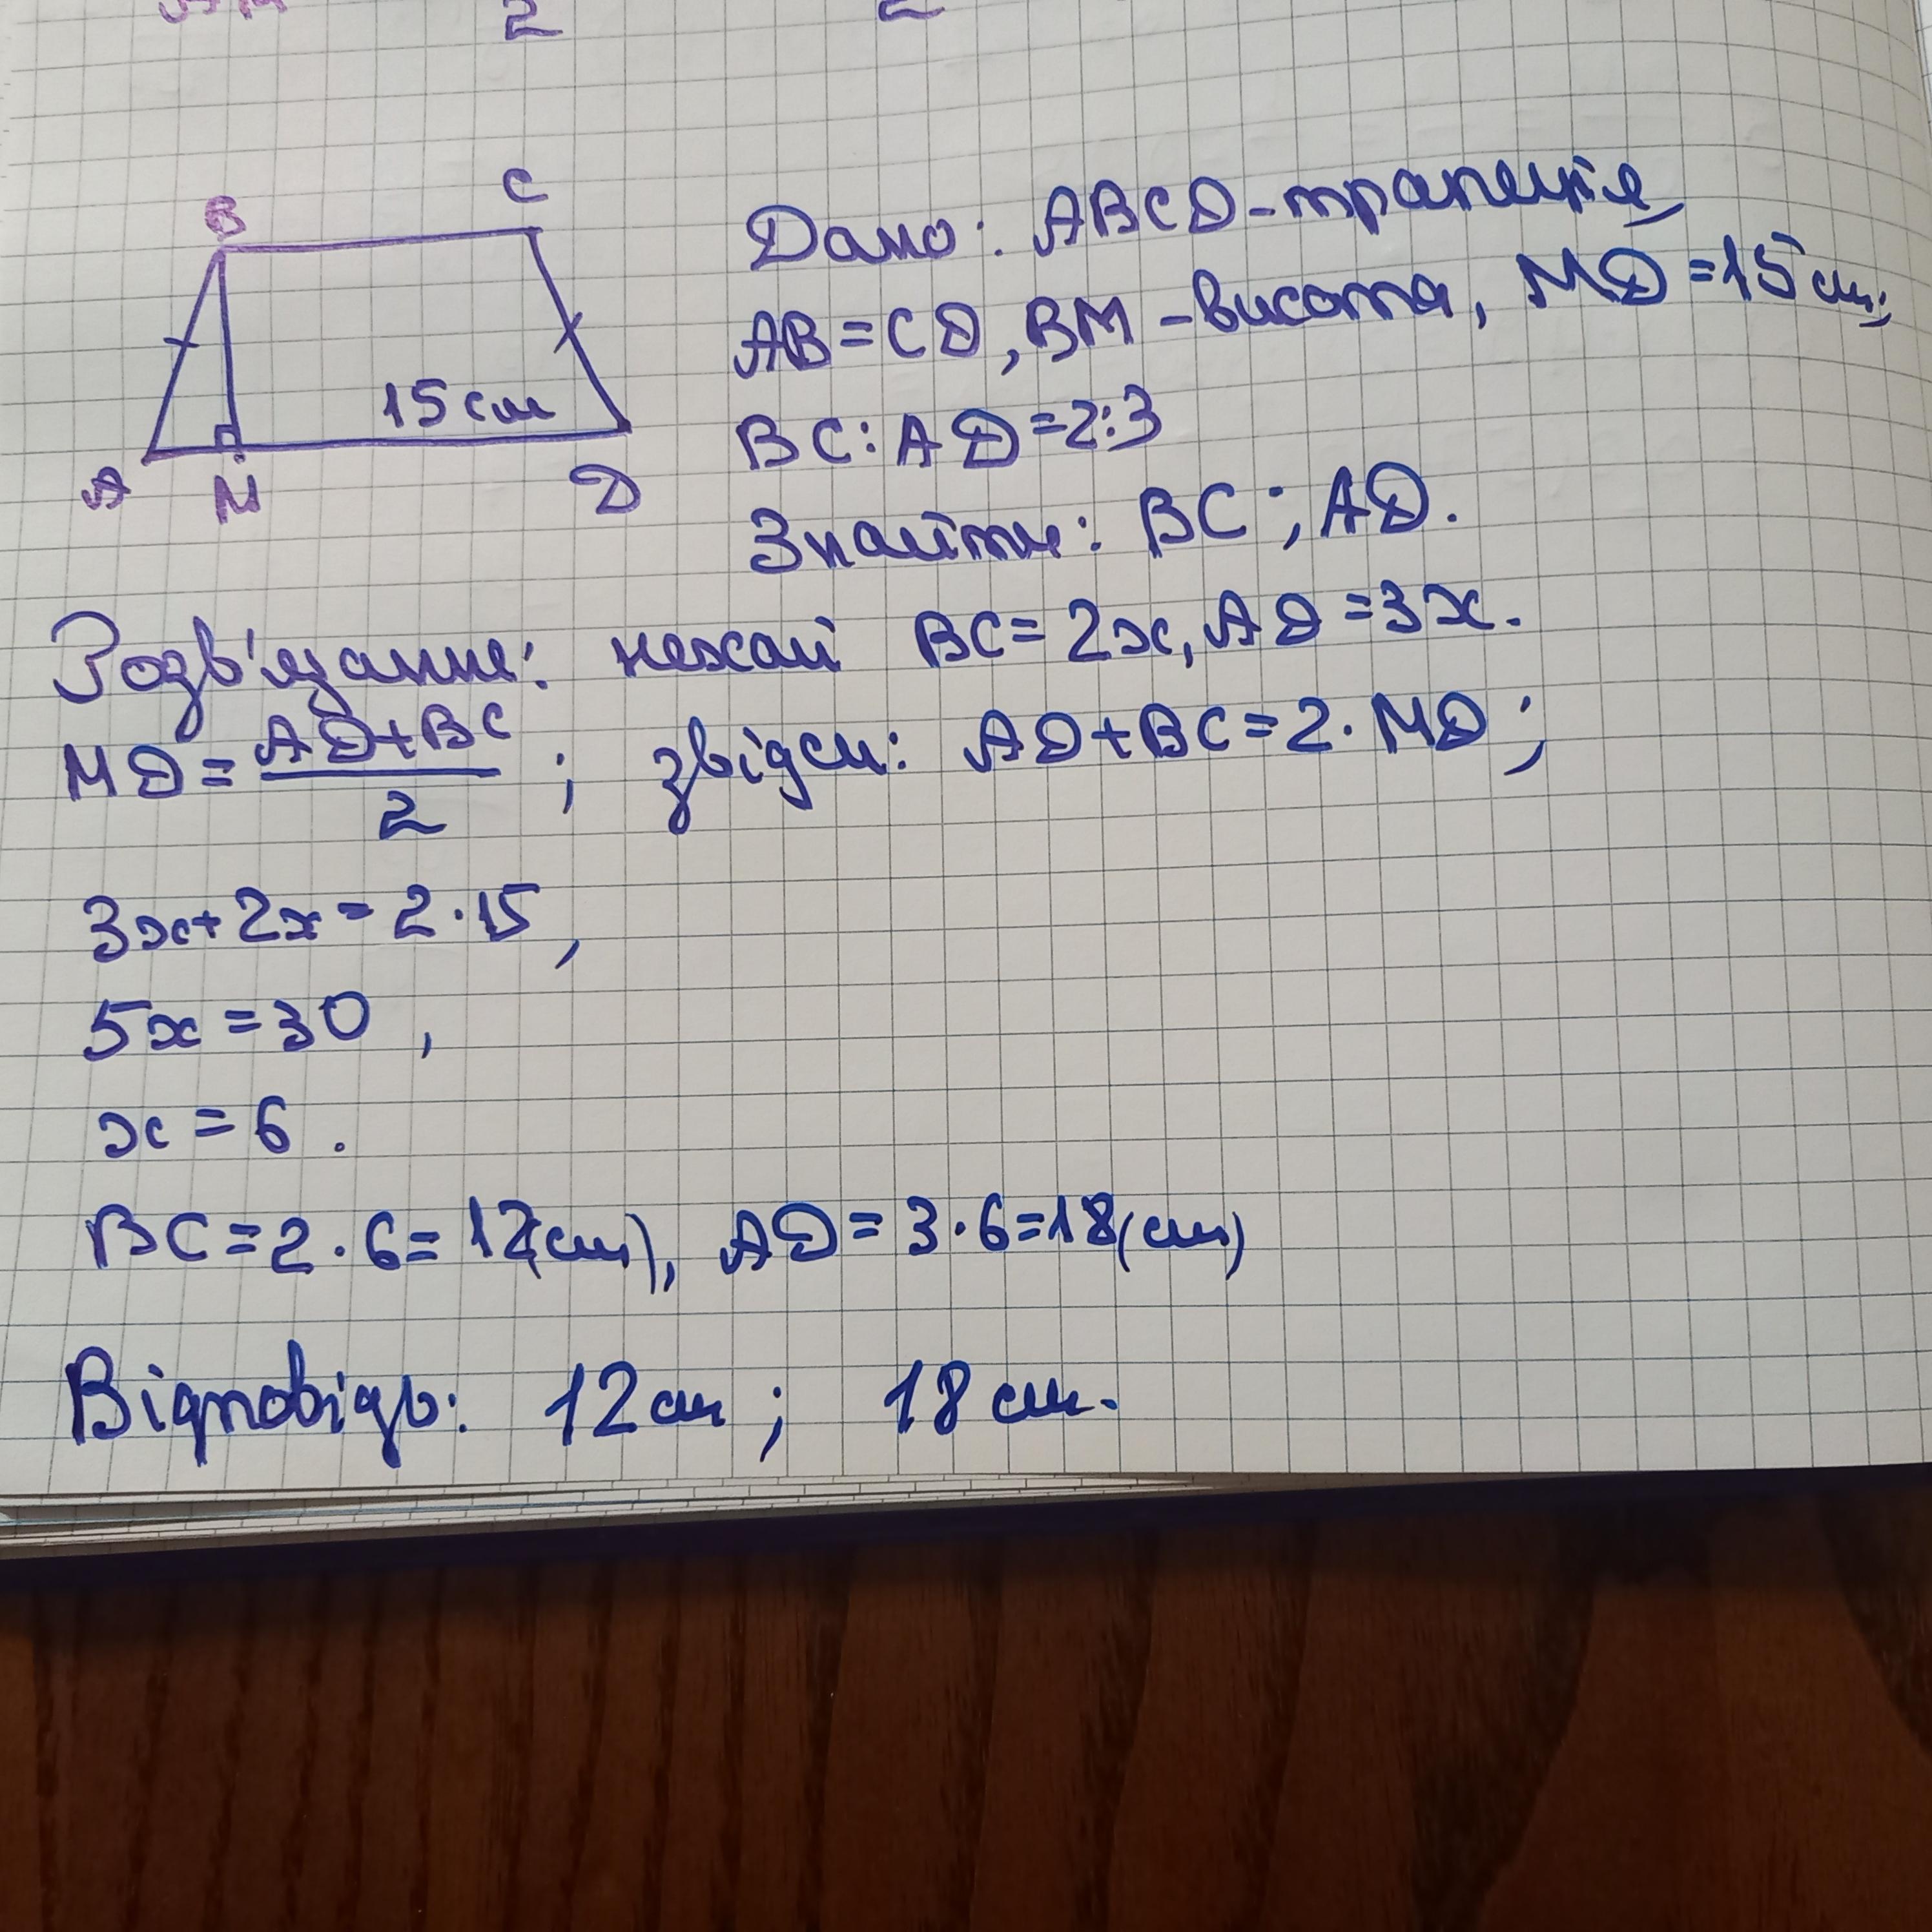 2
2
B
C
15 см
A
M
D
Дано: ABCD - трапеція
AB = CD, BM - висота, MD = 15 см;
BC : AD = 2:3
Знайти: BC ; AD.
Розв'язання: нехай BC = 2x, AD = 3x.
MD = (AD + BC) / 2 ; звідси: AD + BC = 2 · MD ;
3x + 2x = 2 · 15 ,
5x = 30 ,
x = 6 .
BC = 2 · 6 = 12(см), AD = 3 · 6 = 18(см)
Відповідь: 12 см ; 18 см.